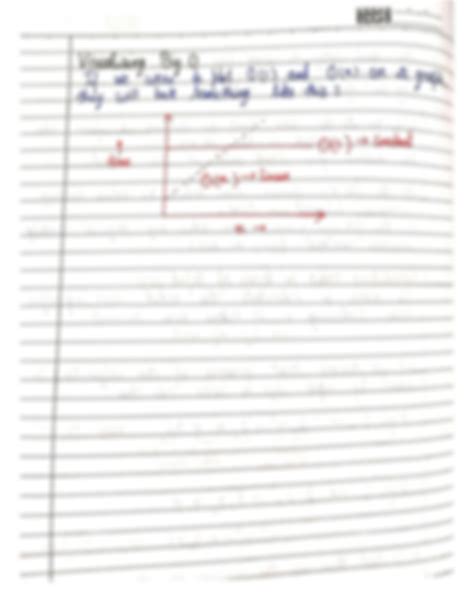 Visualising Big O
If we were to plot O(1) and O(n) on a graph,
they will look something like this :
O(1) → constant
↑
time
O(n) → linear
n →